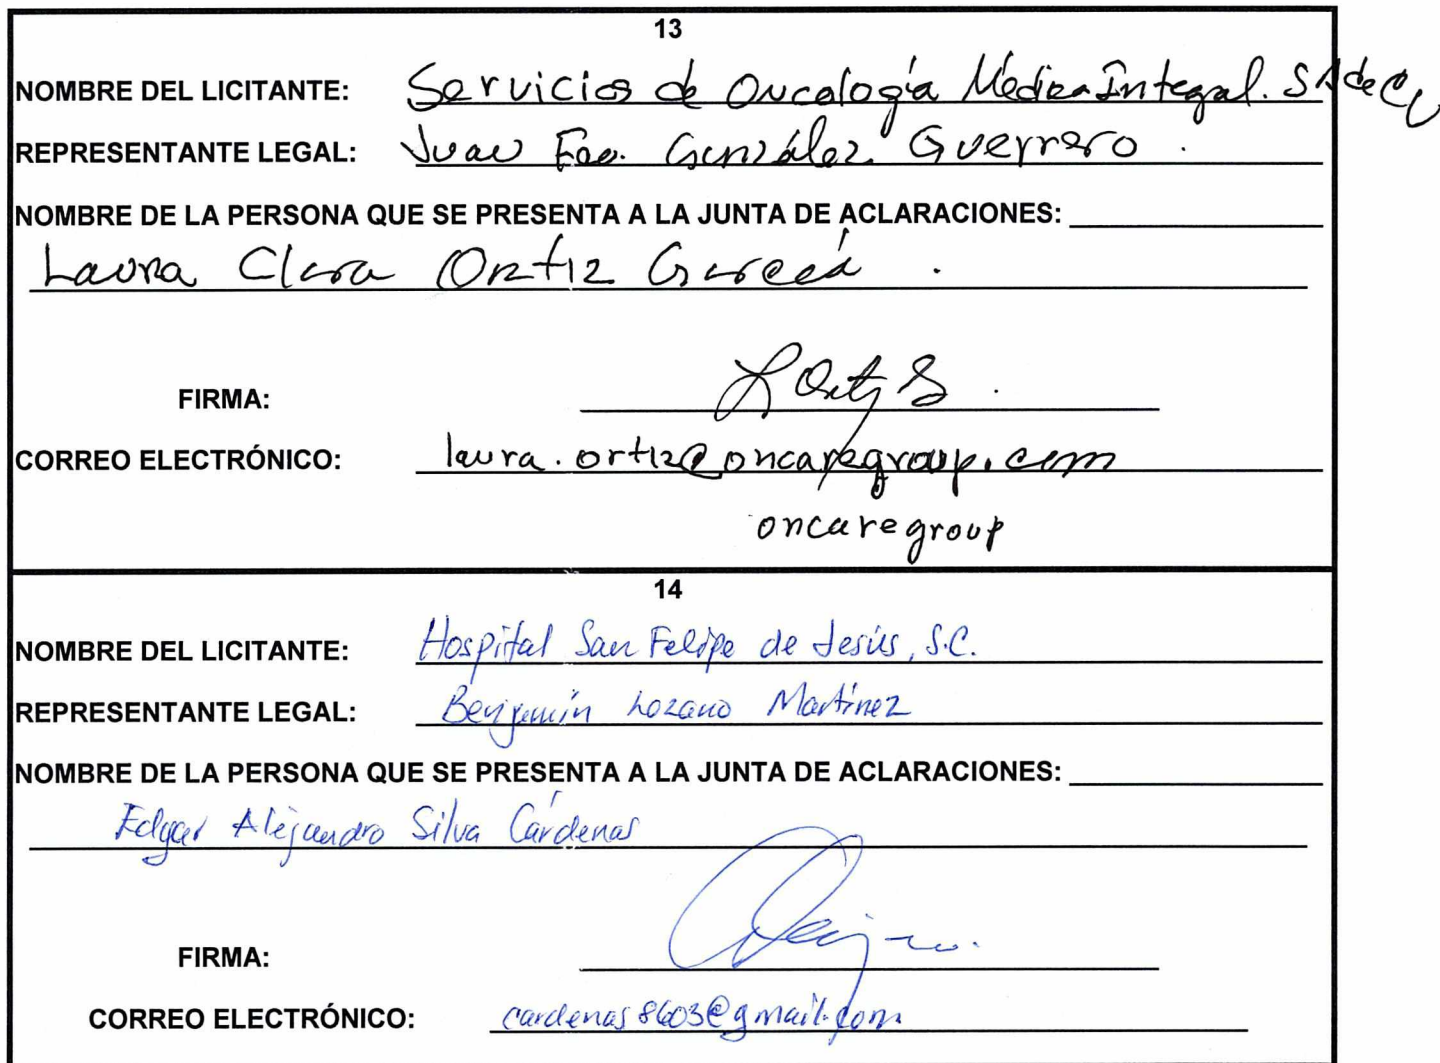 13
NOMBRE DEL LICITANTE: Servicios de Oncología Médica Integral. SA de CV
REPRESENTANTE LEGAL: Juan Fco. González Guerrero.
NOMBRE DE LA PERSONA QUE SE PRESENTA A LA JUNTA DE ACLARACIONES:
Laura Clara Ortiz García.
FIRMA: L Ortiz G.
CORREO ELECTRÓNICO: laura.ortiz@oncaregroup.com
oncaregroup
14
NOMBRE DEL LICITANTE: Hospital San Felipe de Jesús, S.C.
REPRESENTANTE LEGAL: Benjamín Lozano Martínez
NOMBRE DE LA PERSONA QUE SE PRESENTA A LA JUNTA DE ACLARACIONES:
Edgar Alejandro Silva Cárdenas
FIRMA:
CORREO ELECTRÓNICO: cardenas8603@gmail.com